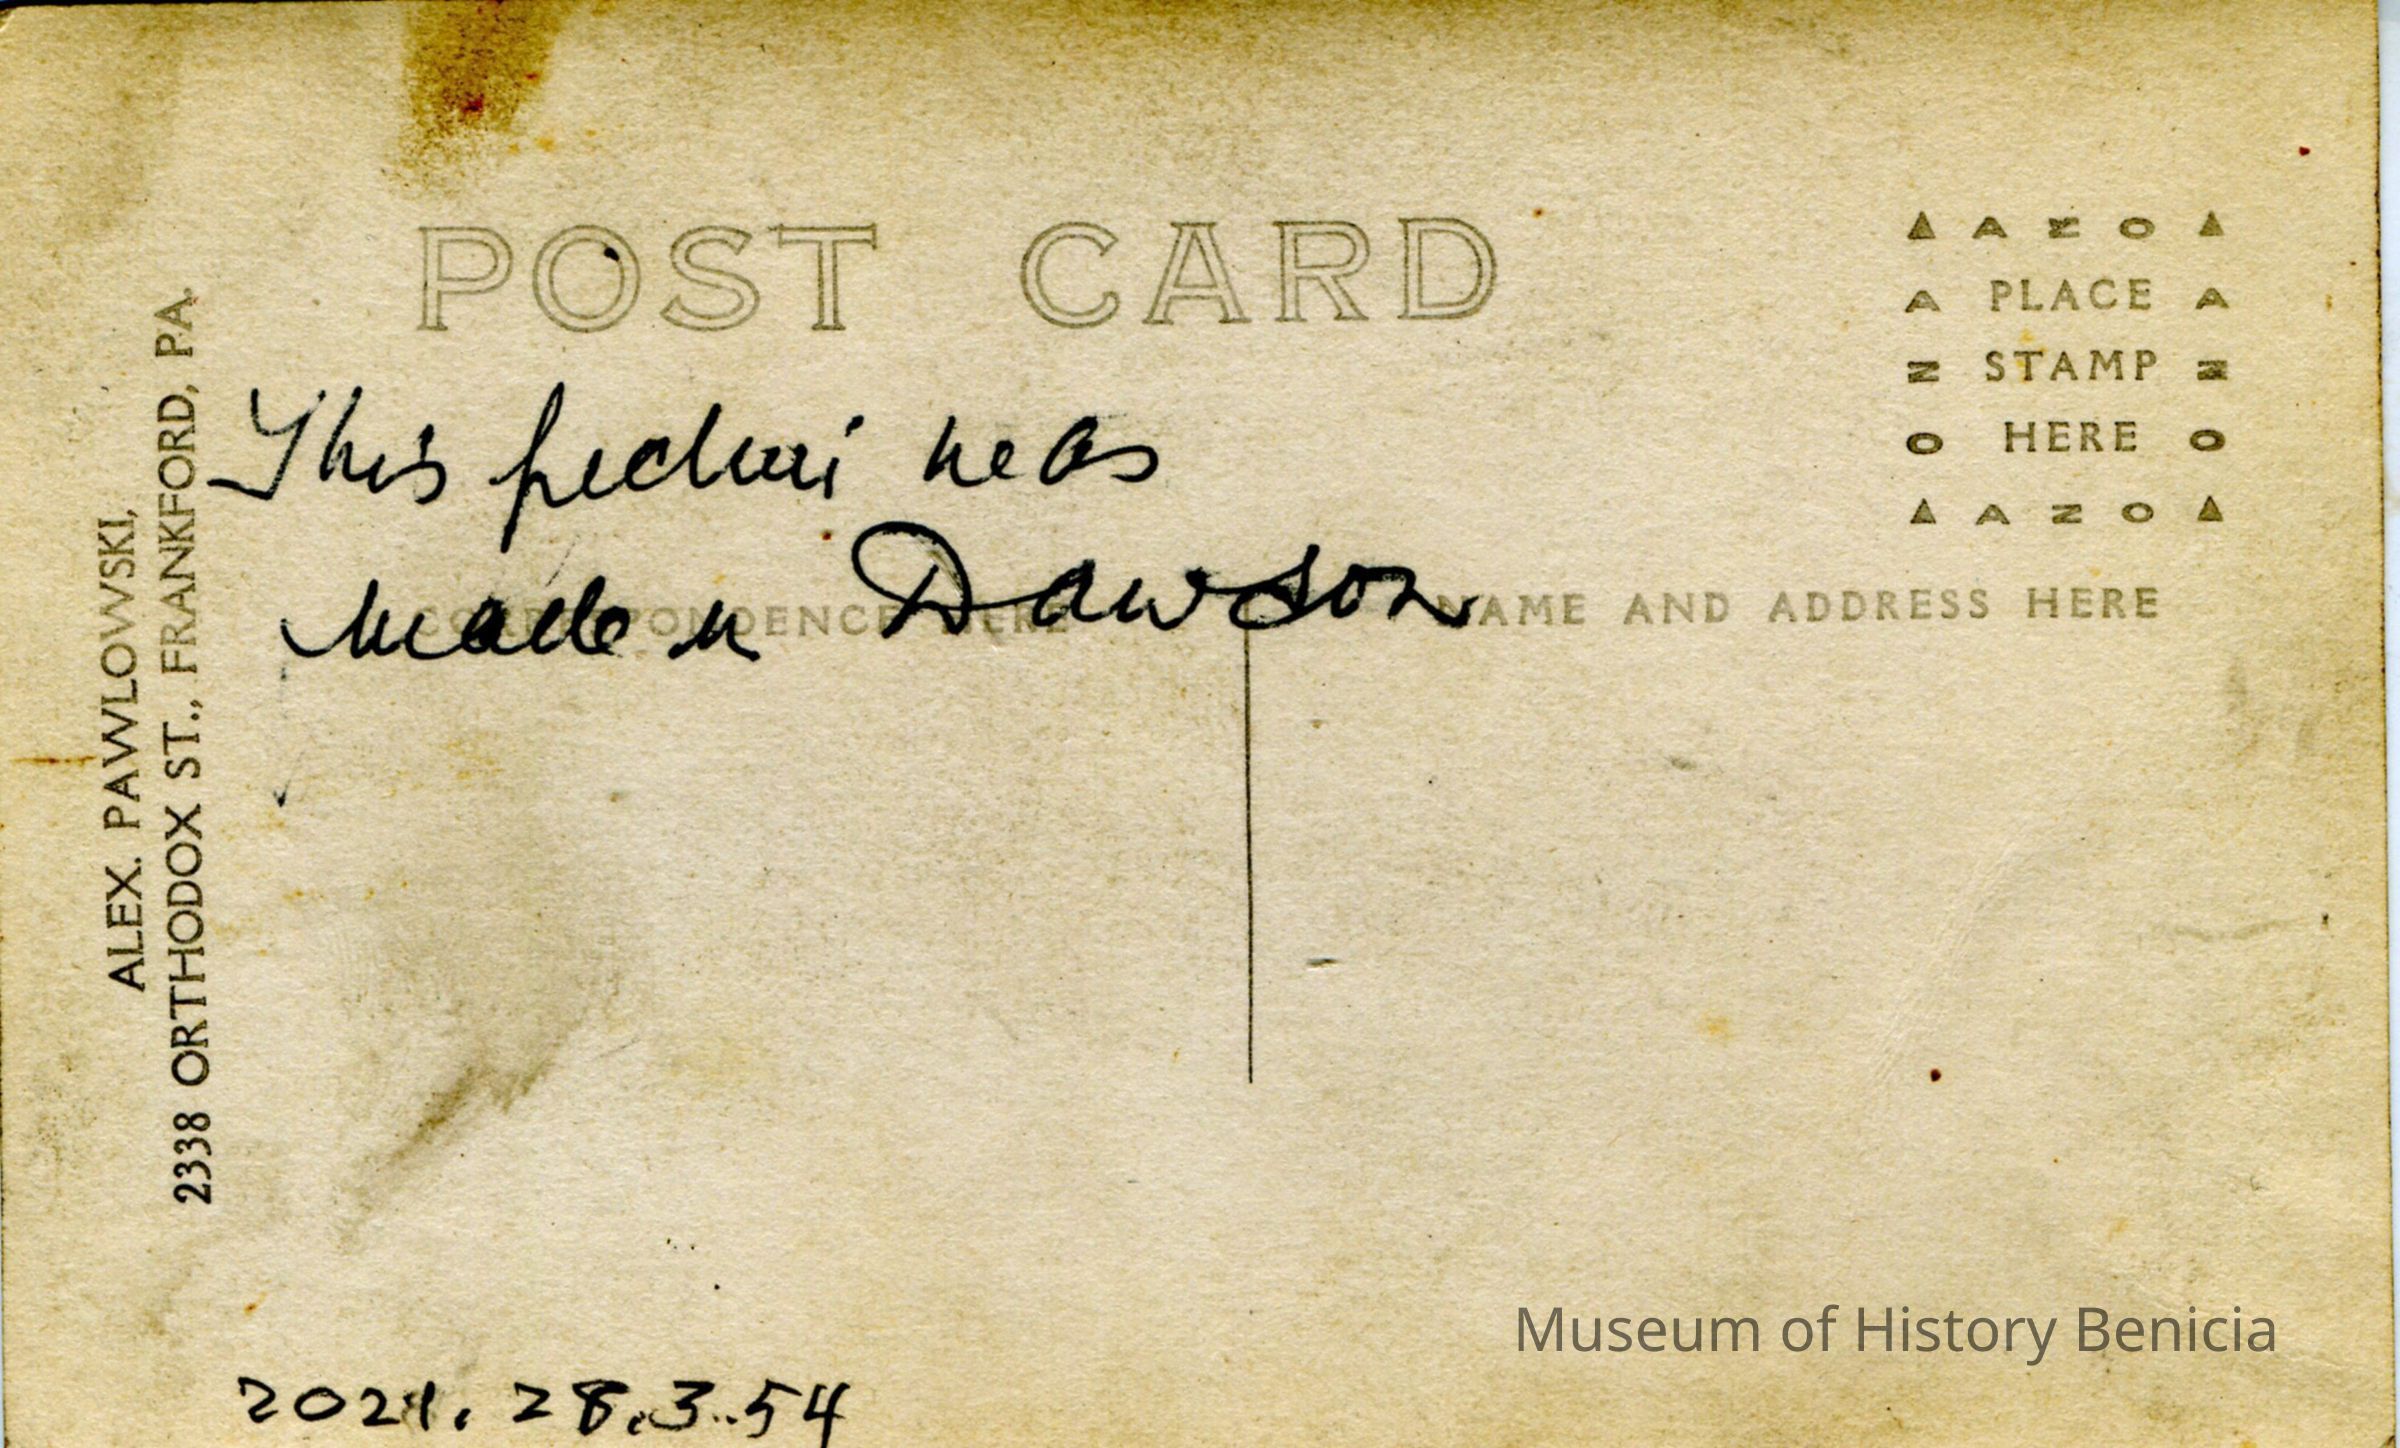 POST CARD
▲ A Z O ▲
A PLACE A
N STAMP N
O HERE O
▲ A Z O ▲
ALEX. PAWLOWSKI,
2338 ORTHODOX ST., FRANKFORD, PA.
This was
made in Dawson
CORRESPONDENCE HERE
NAME AND ADDRESS HERE
2021.28.3.54
Museum of History Benicia